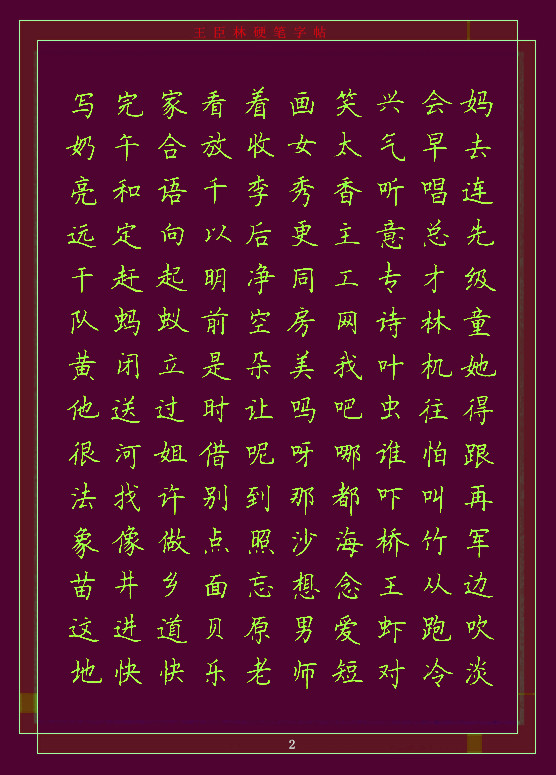 王臣林硬笔字帖
写完家看着画笑兴会妈
奶午合放收女太气早去
亮和语千李秀香听唱连
远定向以后更主意总先
干赶起明净同工专才级
队蚂蚁前空房网诗林童
黄闭立是朵美我叶机她
他送过时让吗吧虫往得
很河姐借呢呀哪谁怕跟
法找许别到那都吓叫再
象像做点照沙海桥竹军
苗井乡面忘想念王从边
这进道贝原男爱虾跑吹
地快快乐老师短对冷淡
2